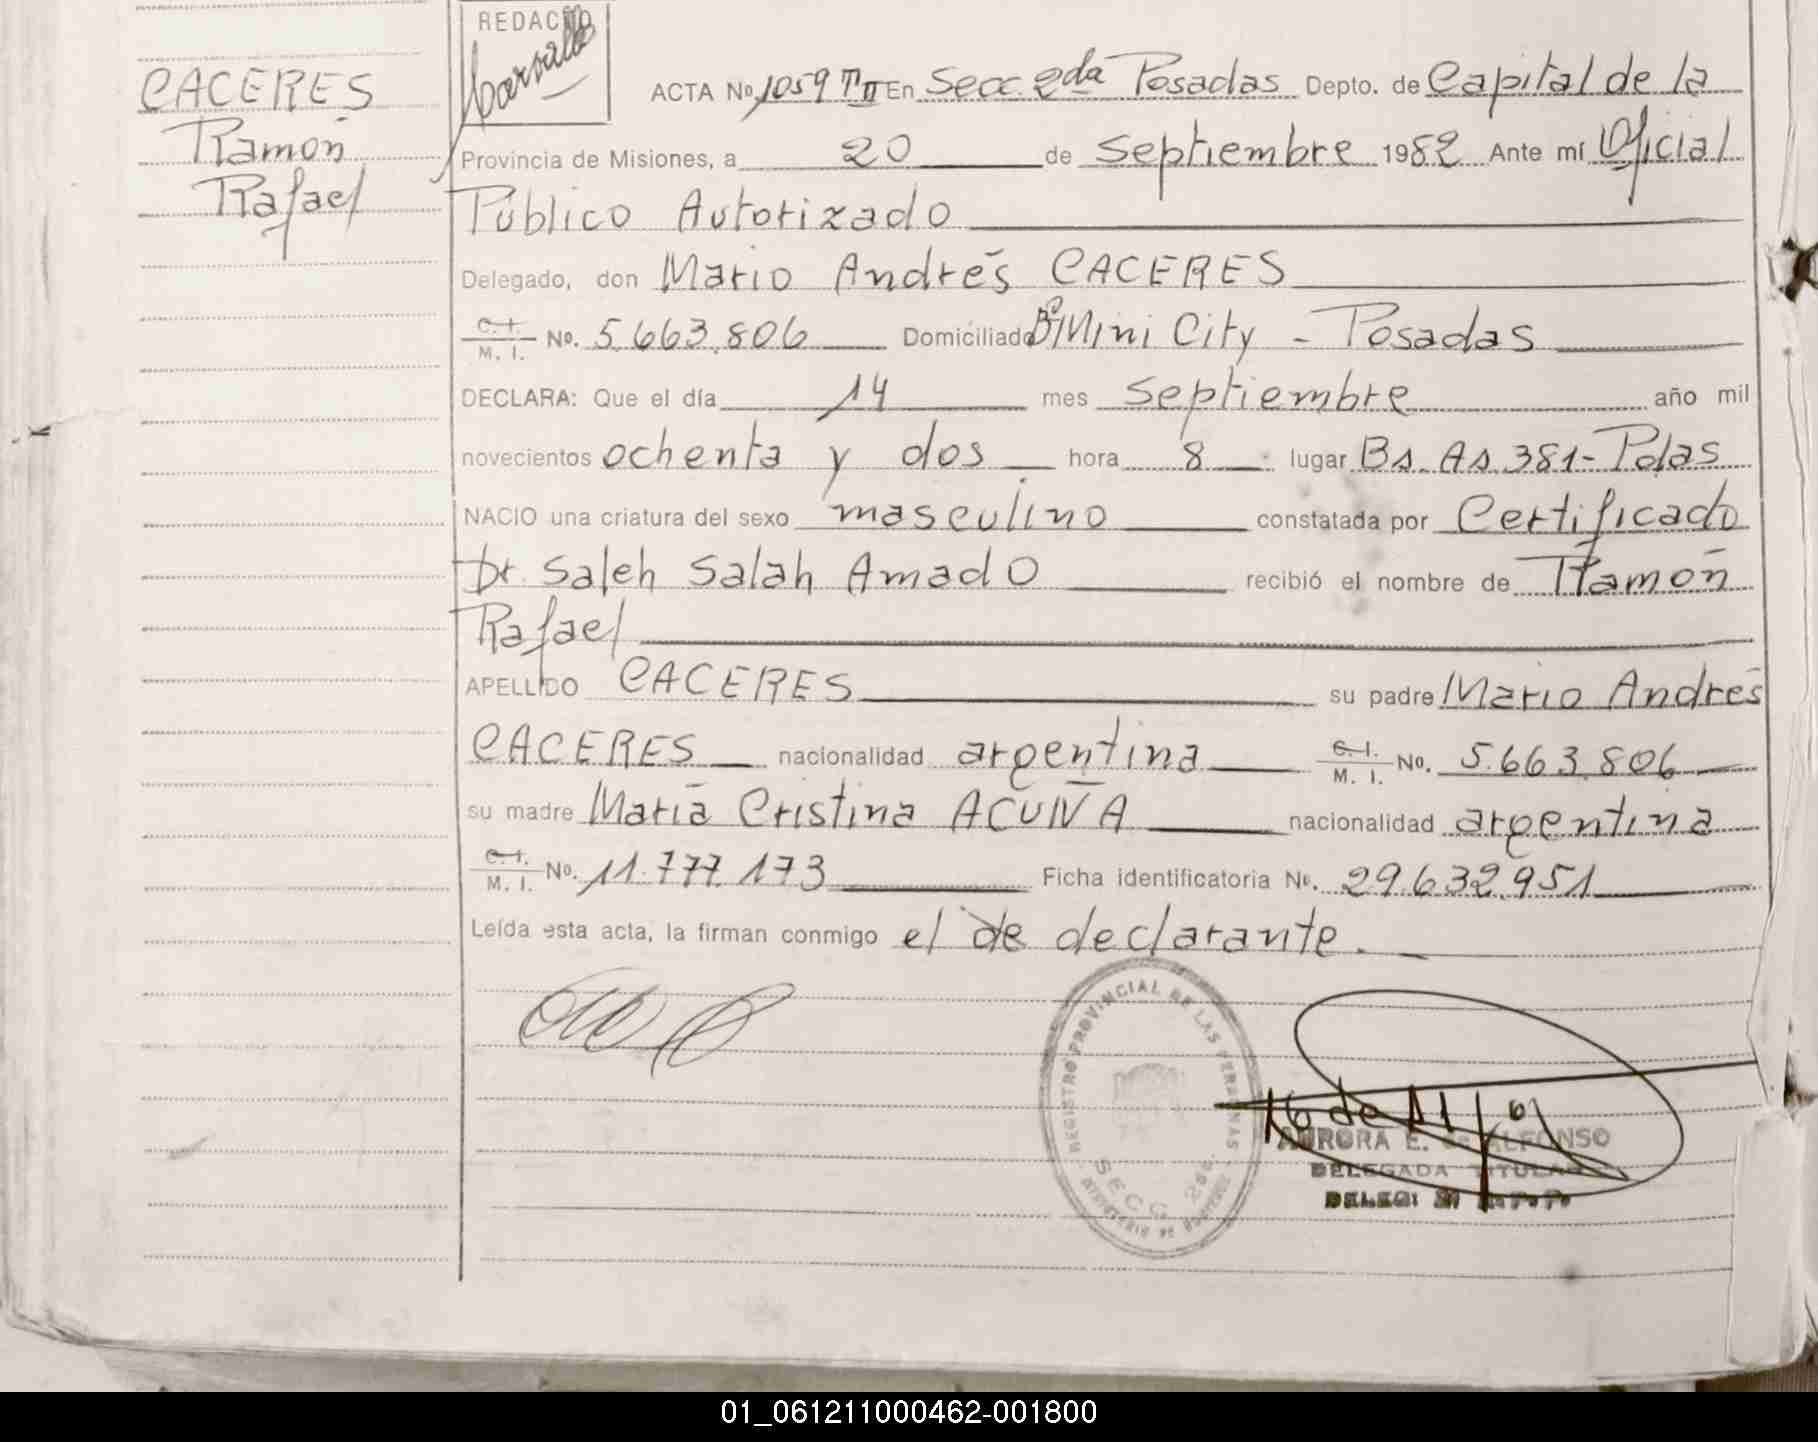 CACERES
Ramón
Rafael
REDACTO
Carvallo
ACTA No. 1059 T II En Secc. 2da Posadas Depto. de Capital de la
Provincia de Misiones, a 20 de Septiembre 1982 Ante mí Oficial
Público Autorizado
Delegado, don Mario Andrés CACERES
C. I. M. I. No. 5.663.806 Domiciliado Bº Mini City - Posadas
DECLARA: Que el día 14 mes Septiembre año mil
novecientos ochenta y dos hora 8 lugar Bs. As. 381- Pdas
NACIO una criatura del sexo masculino constatada por Certificado
Dr. Saleh Salah Amado recibió el nombre de Ramón
Rafael
APELLIDO CACERES su padre Mario Andrés
CACERES nacionalidad argentina C. I. M. I. No. 5.663.806
su madre María Cristina ACUÑA nacionalidad argentina
C. I. M. I. No. 11.777.173 Ficha identificatoria No. 29.632.951
Leída esta acta, la firman conmigo el de declarante.
REGISTRO PROVINCIAL DE LAS PERSONAS
SECC. 2da.
MINISTERIO DE GOBIERNO
16 de 11
AURORA E. de ALFONSO
DELEGADA TITULAR
01_061211000462-001800